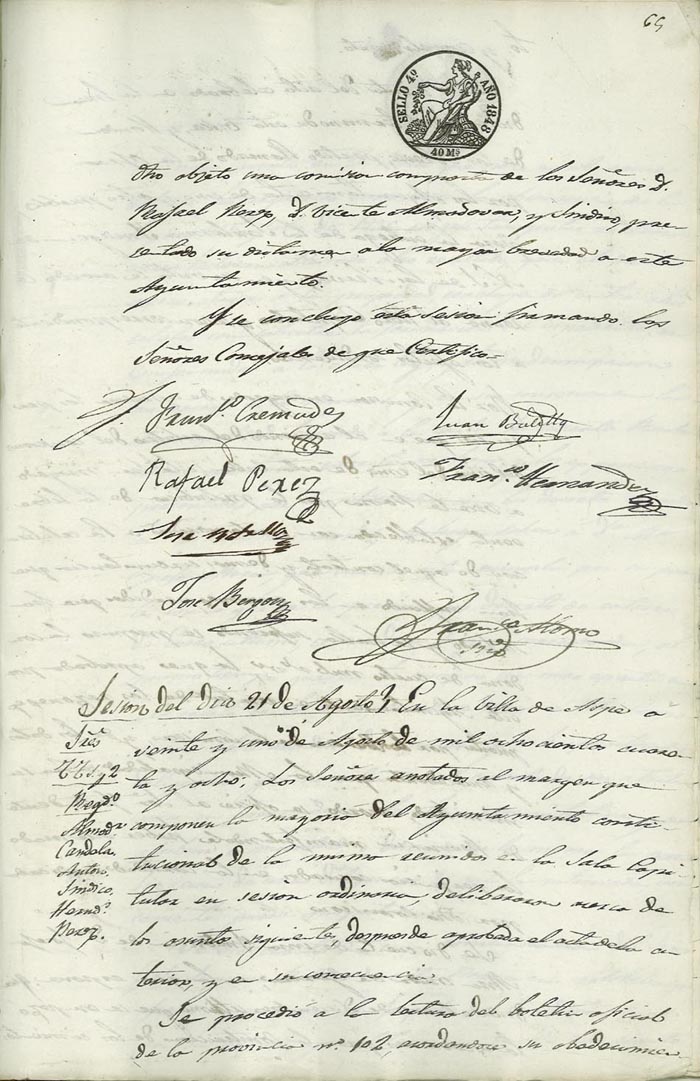 65
SELLO 4º AÑO 1848
40 Ms
dho objeto una comision compuesta de los Señores D.
Rafael Perez, D. Vicente Almodovar, y Sindico, pre-
sentado su dictamen a la mayor brevedad a este
Ayuntamiento.
Y se concluyo esta sesion firmando los
Señores Concejales de que Certifico=
Franco Cremades
Juan
Rafael Perez
Franco Hernandez
Jose
Jose
Franco
Sesion del dia 21 de Agosto En la Villa de Aspe a
Sres veinte y uno de Agosto de mil ochocientos cuaren-
ta y ocho; Los Señores anotados al margen que
componen la mayoria del Ayuntamiento consti-
tucional de la misma reunidos en la Sala Capi-
tular en sesion ordinaria, deliberaron acerca de
los asunto siguiente, despues de aprobada el acta de la an-
terior, y en su consecuencia.
Ttes 1 y 2
Regdo
Almodr
Candela
Anton
Sindico
Hernd
Perez.
Se procedió a la lectura del boletin oficial
de la provincia nº 102, acordandose su obedecimien-